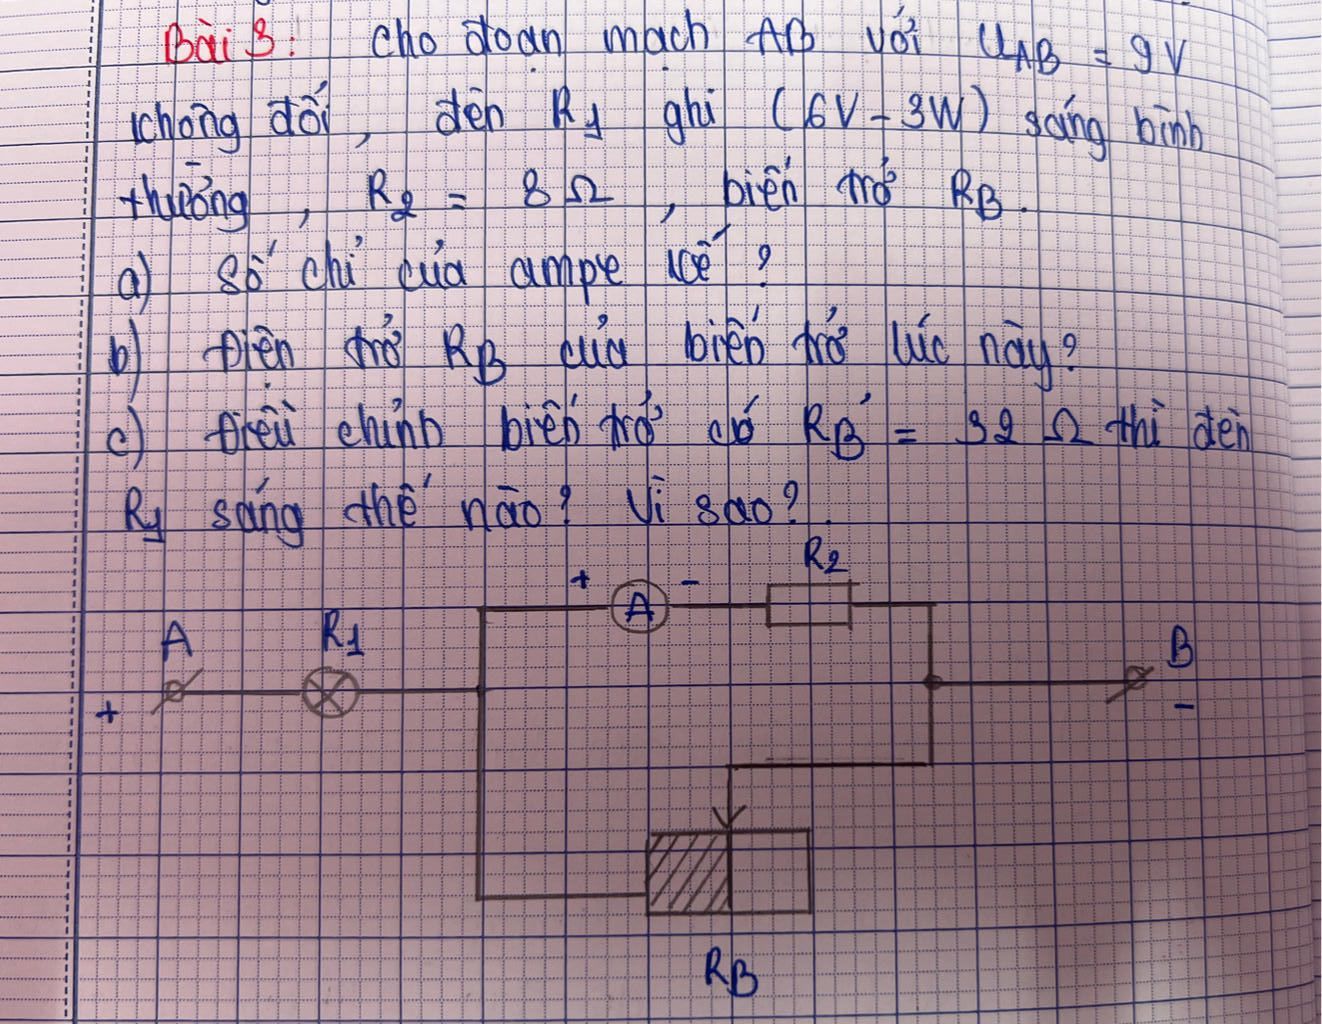 Bài 3: Cho đoạn mạch AB với UAB = 9V
không đổi, đèn R1 ghi (6V - 3W) sáng bình
thường, R2 = 8Ω, biến trở RB.
a) Số chỉ của ampe kế?
b) Điện trở RB của biến trở lúc này?
c) Điều chỉnh biến trở có RB' = 32 Ω thì đèn
R1 sáng thế nào? Vì sao?
R2
+ A -
A R1 B
+ -
RB